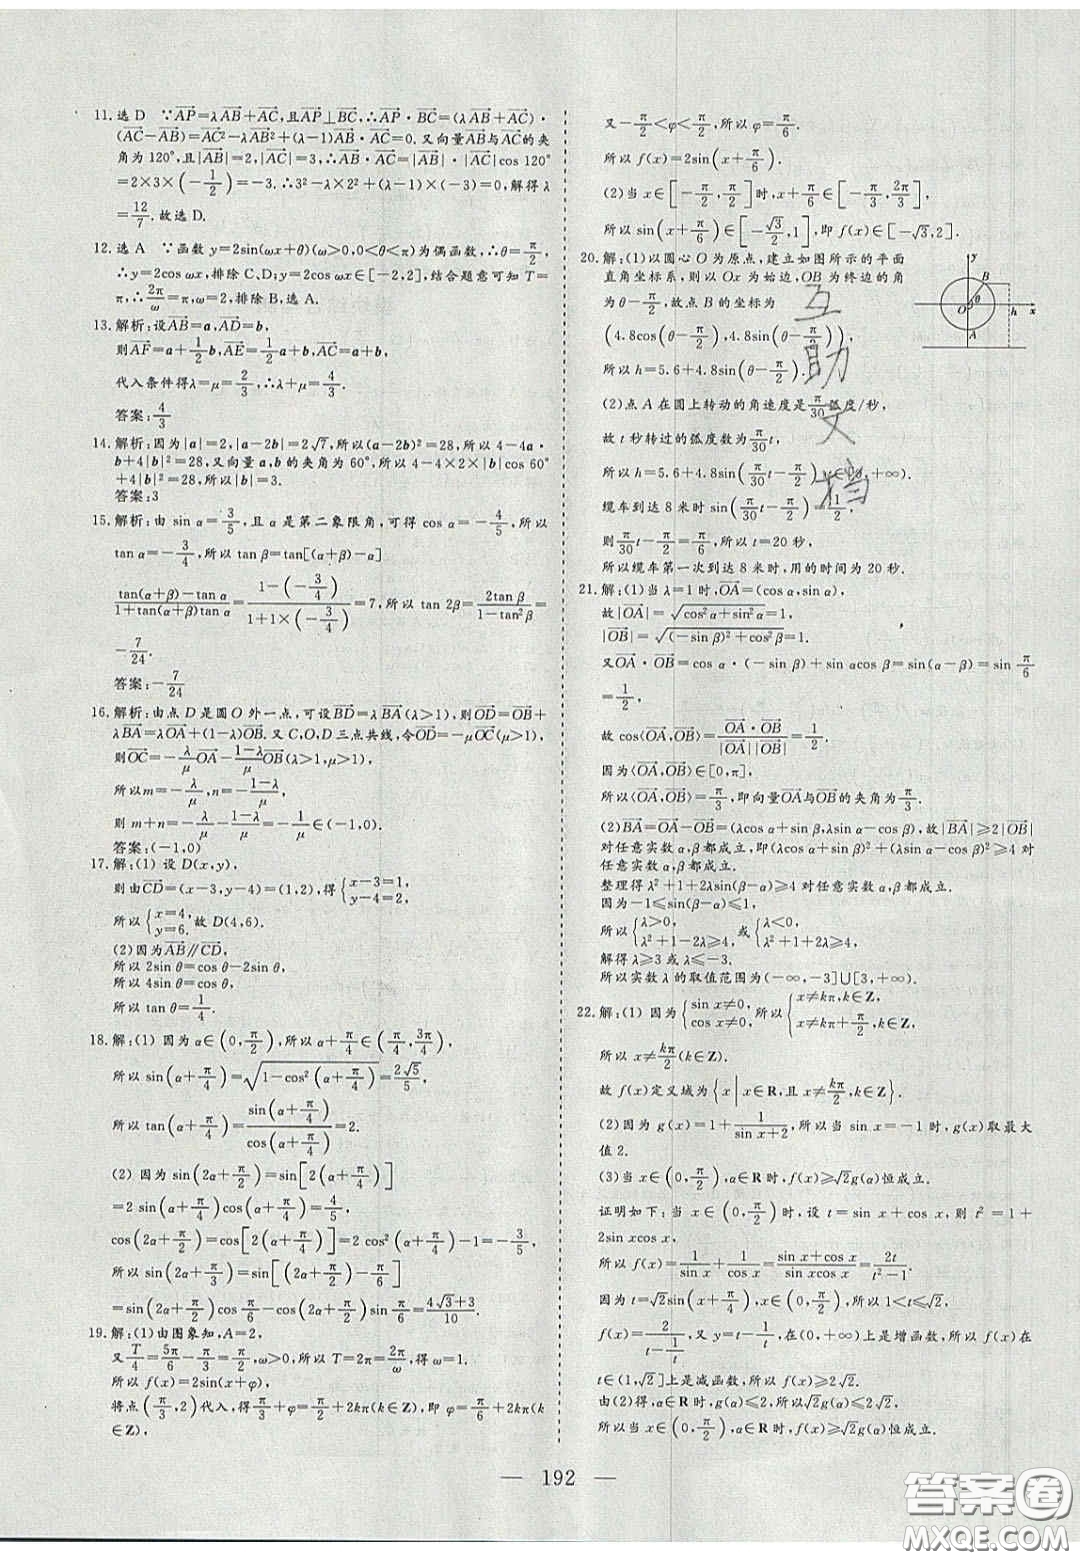 11. 选 D ∵AP=λAB+AC,且AP⊥BC,∴AP·BC=(λAB+AC)·
(AC−AB)=AC²−λAB²+(λ−1)AB·AC=0. 又向量AB与AC的夹
角为120°,且|AB|=2,|AC|=3,∴AB·AC=|AB|·|AC|cos 120°
=2×3×(−1/2)=−3. ∴3²−λ×2²+(λ−1)×(−3)=0,解得λ
=12/7. 故选 D.
12. 选 A ∵函数 y=2sin(ωx+θ)(ω>0,0<θ<π)为偶函数,∴θ=π/2,
∴y=2cos ωx,排除 C、D;y=2cos ωx∈[−2,2],结合题意可知 T=
π,∴2π/ω=π,ω=2,排除 B,选 A.
13. 解析:设AB=a,AD=b,
则AF=a+1/2 b,AE=1/2 a+b,AC=a+b,
代入条件得λ=μ=2/3,∴λ+μ=4/3.
答案:4/3
14. 解析:因为|a|=2,|a−2b|=2√7,所以(a−2b)²=28,所以 4−4a·
b+4|b|²=28,又向量 a,b的夹角为60°,所以 4−4×2×|b|cos 60°
+4|b|²=28,所以|b|=3.
答案:3
15. 解析:由 sin α=3/5,且 α 是第二象限角,可得 cos α=−4/5,所以
tan α=−3/4,所以 tan β=tan[(α+β)−α]=
(tan(α+β)−tan α)/(1+tan(α+β)tan α)=(1−(−3/4))/(1+1×(−3/4))=7,所以 tan 2β=2tan β/(1−tan²β)=
−7/24.
答案:−7/24
16. 解析:由点 D 是圆 O 外一点,可设BD=λBA(λ>1),则OD=OB+
λBA=λOA+(1−λ)OB. 又 C,O,D 三点共线,令OD=−μOC(μ>1),
则OC=−λ/μ OA−(1−λ)/μ OB(λ>1,μ>1),
所以m=−λ/μ,n=−(1−λ)/μ,
则 m+n=−λ/μ−(1−λ)/μ=−1/μ∈(−1,0).
答案:(−1,0)
17. 解:(1) 设 D(x,y),
则由CD=(x−3,y−4)=(1,2),得{x−3=1, y−4=2,
所以{x=4, y=6. 故 D(4,6).
(2)因为AB∥CD,
所以 2sin θ=cos θ−2sin θ,
所以 4sin θ=cos θ,
所以 tan θ=1/4.
18. 解:(1) 因为 α∈(0,π/2),所以 α+π/4∈(π/4,3π/4),
所以 sin(α+π/4)=√(1−cos²(α+π/4))=2√5/5,
所以 tan(α+π/4)=sin(α+π/4)/cos(α+π/4)=2.
(2) 因为 sin(2α+π/2)=sin[2(α+π/4)]
=2 sin(α+π/4)cos(α+π/4)=4/5,
cos(2α+π/2)=cos[2(α+π/4)]=2 cos²(α+π/4)−1=−3/5,
所以 sin(2α+π/3)=sin[(2α+π/2)−π/6]
=sin(2α+π/2)cos π/6−cos(2α+π/2)sin π/6=(4√3+3)/10.
19. 解:(1)由图象知,A=2,
又 T/4=5π/6−π/3=π/2,ω>0,所以 T=2π=2π/ω,得 ω=1.
所以 f(x)=2sin(x+φ),
将点(π/3,2)代入,得π/3+φ=π/2+2kπ(k∈Z),即 φ=π/6+2kπ(k
∈Z),
又−π/2<φ<π/2,所以 φ=π/6.
所以 f(x)=2sin(x+π/6).
(2)当 x∈[−π/2,π/2]时,x+π/6∈[−π/3,2π/3],
所以 sin(x+π/6)∈[−√3/2,1],即 f(x)∈[−√3,2].
20. 解:(1)以圆心 O 为原点,建立如图所示的平面
直角坐标系,则以 Ox 为始边,OB 为终边的角
为 θ−π/2,故点 B 的坐标为
(4.8cos(θ−π/2),4.8sin(θ−π/2)),
所以 h=5.6+4.8sin(θ−π/2).
y
B
O
θ
h
x
A
(2)点 A 在圆上转动的角速度是π/30弧度/秒,
故 t 秒转过的弧度数为π/30 t,
所以 h=5.6+4.8sin(π/30 t−π/2),t∈[0,+∞).
缆车到达 8 米时 sin(π/30 t−π/2)=1/2,
则π/30 t−π/2=π/6,所以 t=20 秒.
所以缆车第一次到达 8 米时,用的时间为 20 秒.
互助文档
21. 解:(1)当 λ=1 时,OA=(cos α,sin α),
故|OA|=√(cos²α+sin²α)=1,
|OB|=√((−sin β)²+cos²β)=1.
又OA·OB=cos α·(−sin β)+sin αcos β=sin(α−β)=sin π/6
=1/2,
故 cos⟨OA,OB⟩=OA·OB/(|OA||OB|)=1/2.
因为⟨OA,OB⟩∈[0,π],
所以⟨OA,OB⟩=π/3,即向量OA与OB的夹角为π/3.
(2)BA=OA−OB=(λcos α+sin β,λsin α−cos β),故|BA|≥2|OB|
对任意实数 α,β都成立,即(λcos α+sin β)²+(λsin α−cos β)²≥4 对
任意实数 α,β都成立.
整理得 λ²+1+2λsin(β−α)≥4 对任意实数 α,β都成立.
因为−1≤sin(β−α)≤1,
所以{λ>0, λ²+1−2λ≥4,或{λ<0, λ²+1+2λ≥4,
解得 λ≥3 或 λ≤−3.
所以实数 λ 的取值范围为(−∞,−3]∪[3,+∞).
22. 解:(1) 因为{sin x≠0, cos x≠0,所以{x≠kπ,k∈Z, x≠kπ+π/2,k∈Z,
所以 x≠kπ/2(k∈Z).
故 f(x)定义域为{x|x∈R,且 x≠kπ/2,k∈Z}.
(2)因为 g(x)=1+1/(sin x+2),所以当 sin x=−1 时,g(x)取最大
值 2.
(3)当 x∈(0,π/2),α∈R 时,f(x)≥√2g(α)恒成立.
证明如下:当 x∈(0,π/2)时,设 t=sin x+cos x,则 t²=1+
2sin xcos x,
所以 f(x)=1/sin x+1/cos x=(sin x+cos x)/(sin xcos x)=2t/(t²−1).
因为 t=√2sin(x+π/4),x∈(0,π/2),所以 1<t≤√2,
f(x)=2/(t−1/t),又 y=t−1/t,在(0,+∞)上是增函数,所以 f(x)在
t∈(1,√2]上是减函数,所以 f(x)≥2√2.
由(2)得,α∈R 时,g(α)≤2,所以√2g(α)≤2√2,
所以当 x∈(0,π/2),α∈R 时,f(x)≥√2g(α)恒成立.
— 192 —
答案圈
MXQE.COM